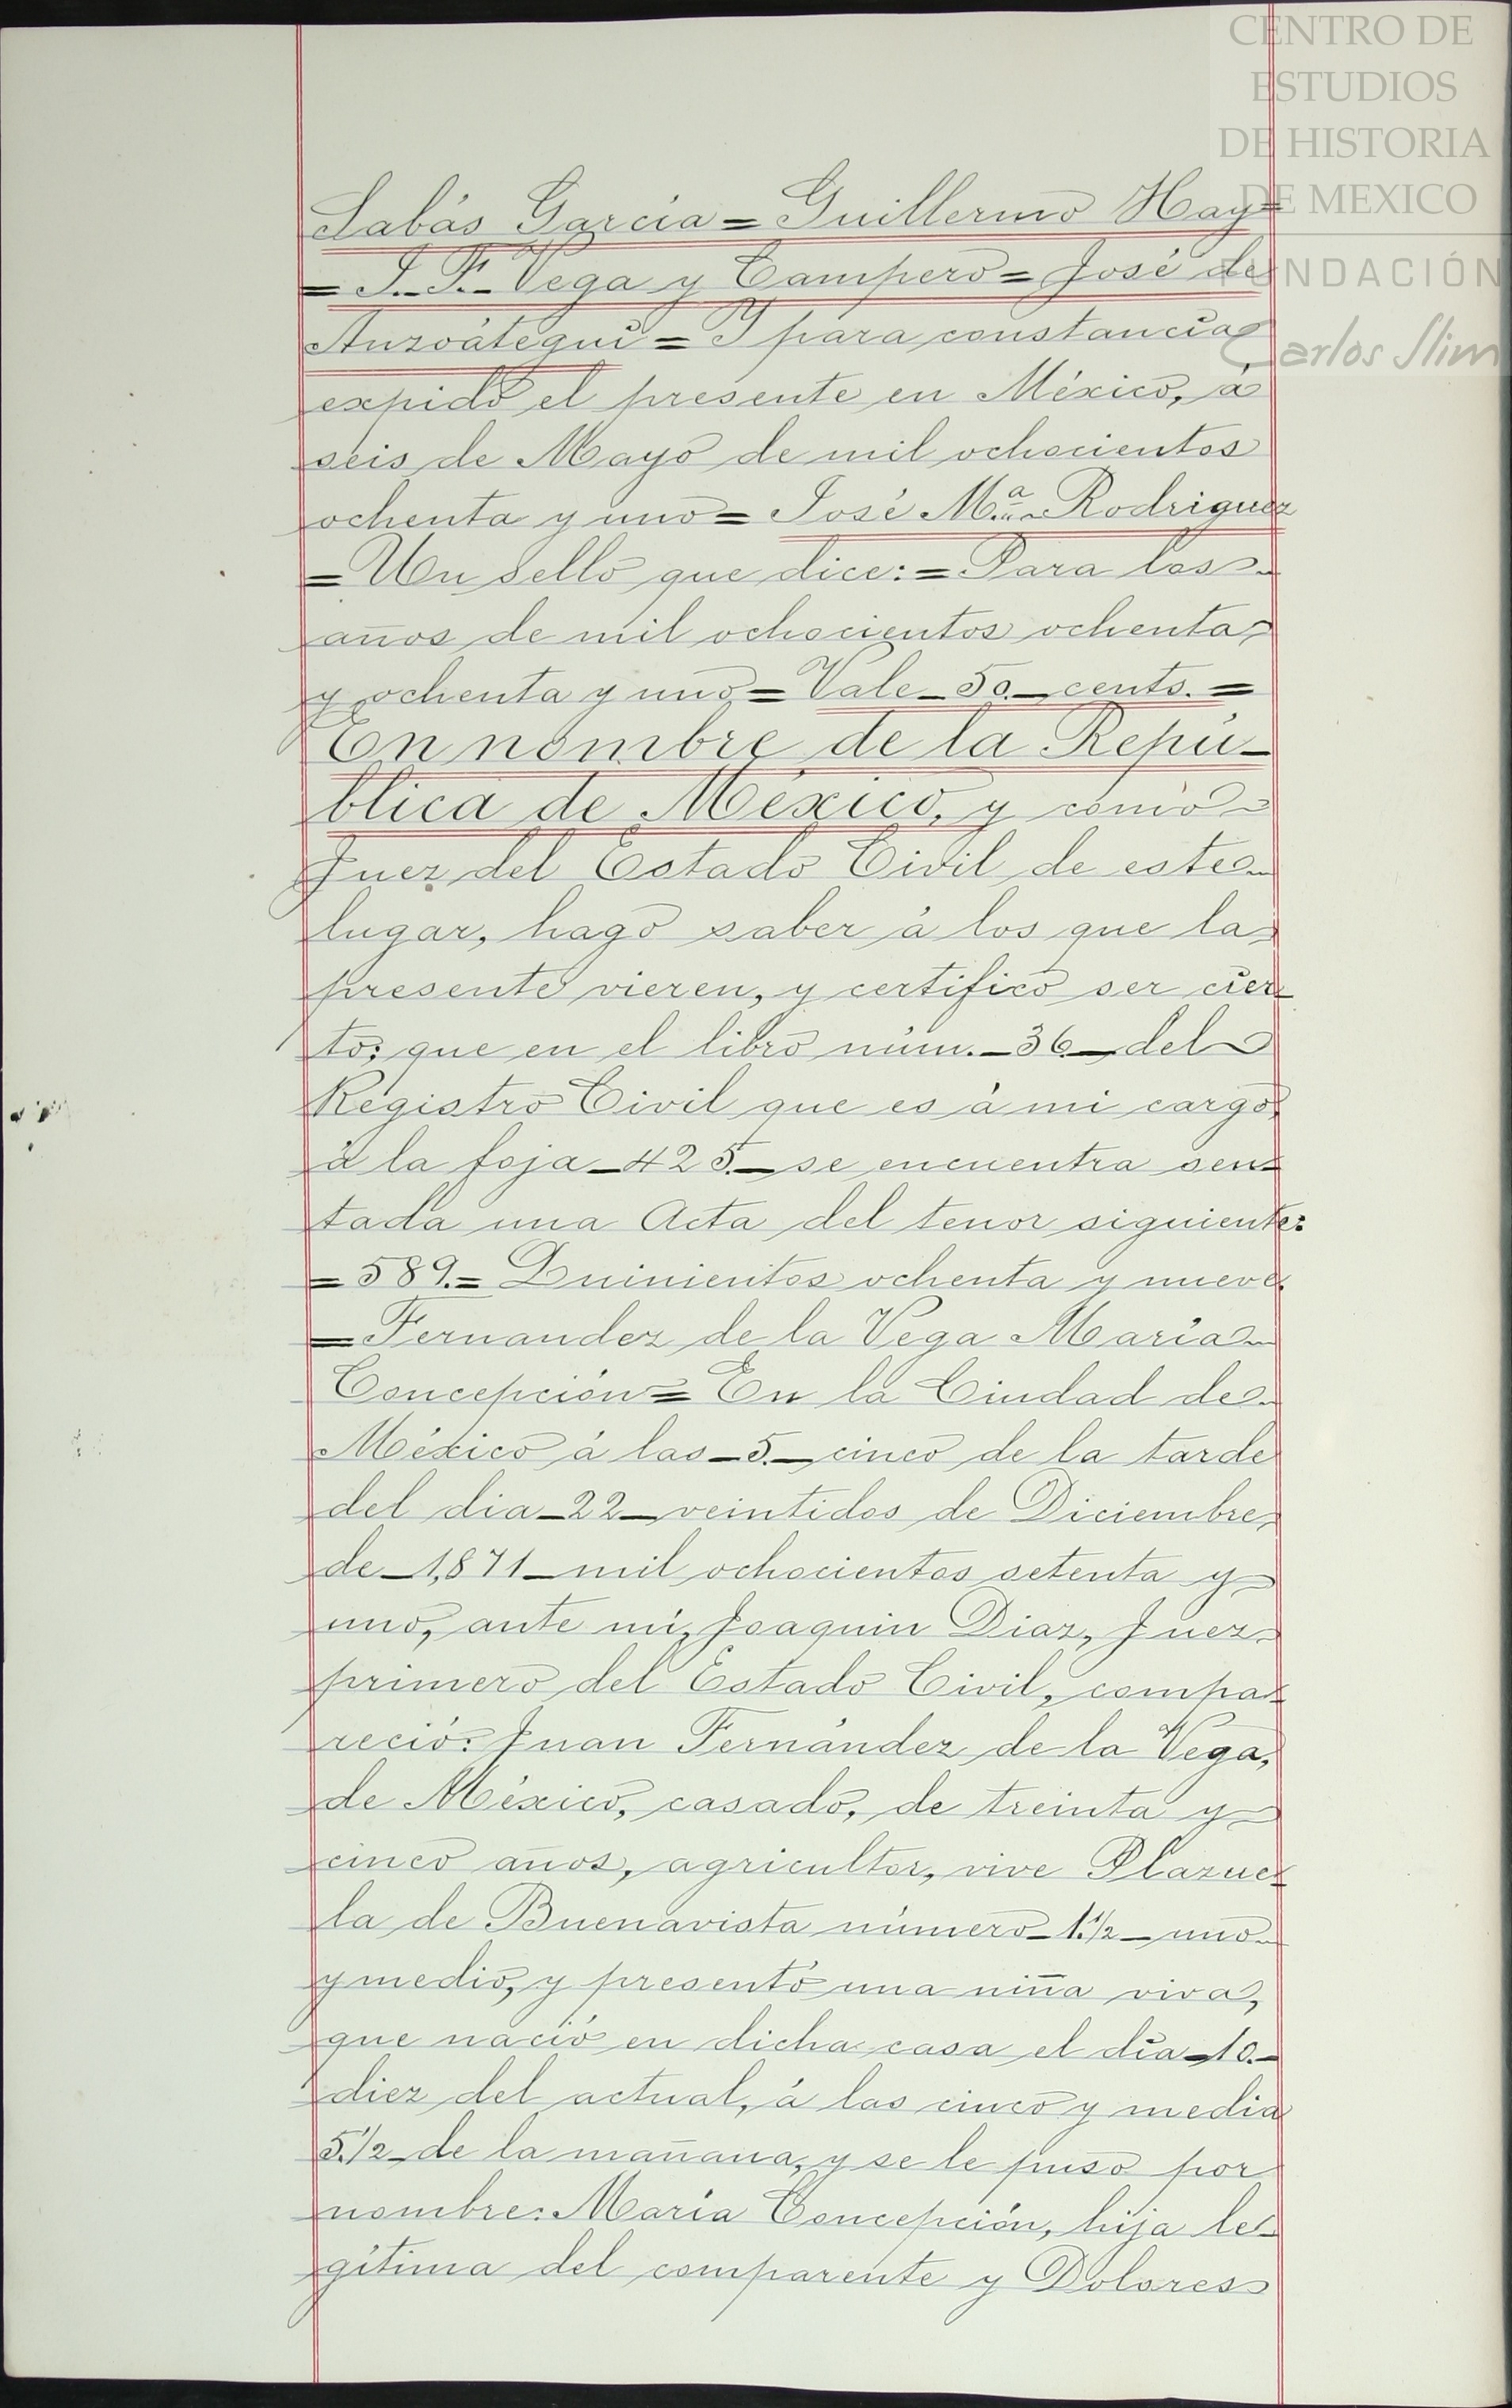 CENTRO DE
ESTUDIOS
DE HISTORIA
DE MEXICO
FUNDACIÓN
Carlos Slim
Sabás García = Guillermo Hay =
= J. F. Vega y Campero = José de
Anzoátegui = Y para constancia
expido el presente en México, á
seis de Mayo de mil ochocientos
ochenta y uno = José M.ª Rodriguez
= Un sello que dice: = Para los
años de mil ochocientos ochenta
y ochenta y uno = Vale _ 50 _ cents. =
En nombre de la Repú_
blica de México, y como
Juez del Estado Civil de este
lugar, hago saber á los que la
presente vieren, y certifico ser cier_
to; que en el libro núm. _ 36 _ del
Registro Civil que es á mi cargo,
á la foja _ 425 _ se encuentra sen=
tada una Acta del tenor siguiente:
= 589. = Quinientos ochenta y nueve
= Fernandez de la Vega María
Concepción = En la Ciudad de
México á las _ 5. _ cinco de la tarde
del dia _ 22 _ veintidos de Diciembre
de _ 1,871 _ mil ochocientos setenta y
uno, ante mi, Joaquin Diaz, Juez
primero del Estado Civil, compa=
reció: Juan Fernández de la Vega,
de México, casado, de treinta y
cinco años, agricultor, vive Plazue=
la de Buenavista número _ 1.½ _ uno
y medio, y presentó una niña viva,
que nació en dicha casa el día _ 10. _
diez del actual, á las cinco y media
5.½ _ de la mañana, y se le puso por
nombre: María Concepción, hija le_
gítima del comparente y Dolores